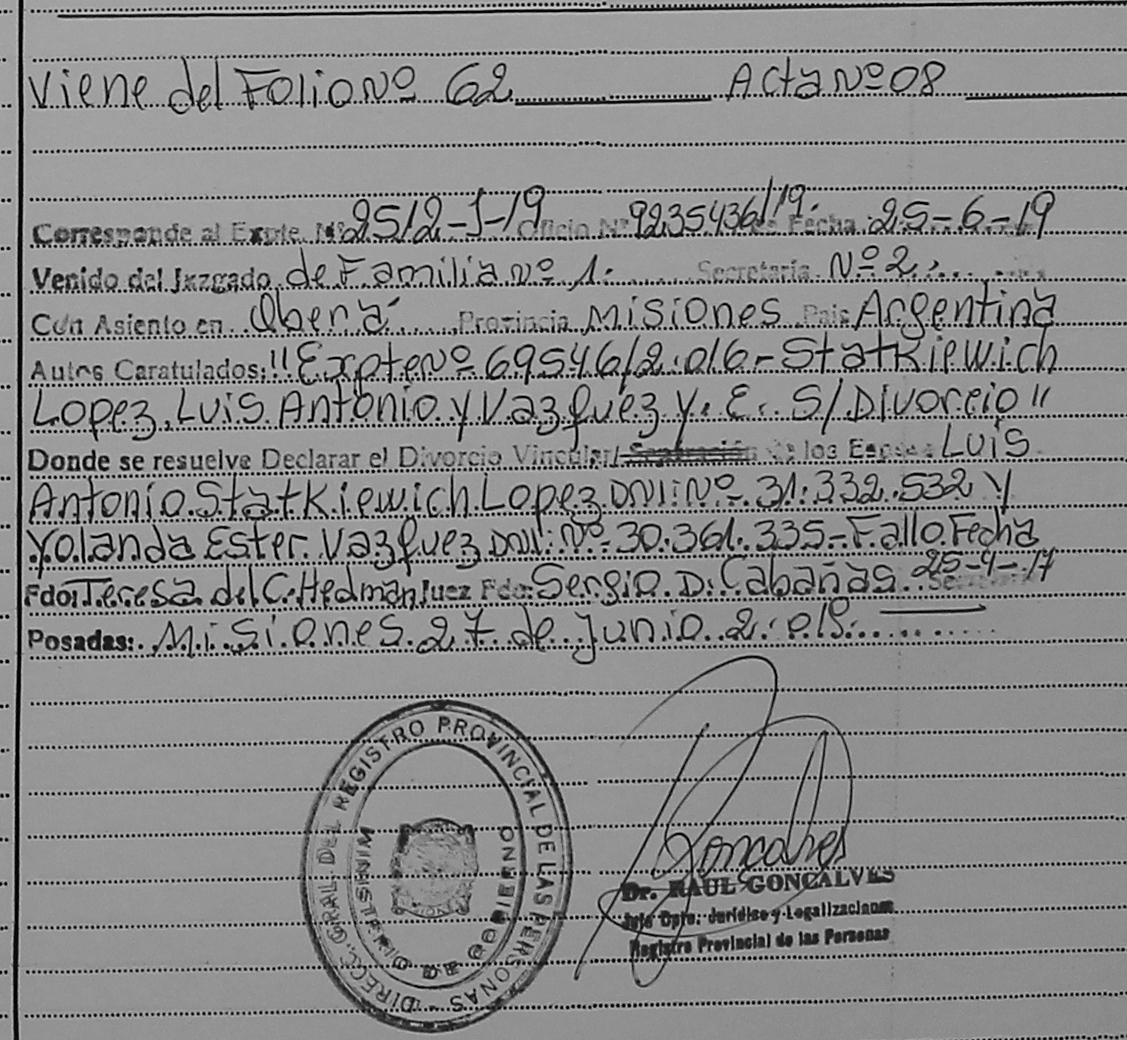 Viene del Folio Nº 62 Acta Nº 08
Corresponde al Expte. Nº 2512-J-19 Oficio Nº 92354361/19. Fecha 25-6-19
Venido del Juzgado de Familia Nº 1. Secretaria Nº 2.
Con Asiento en Oberá Provincia Misiones Pais Argentina
Autos Caratulados: "Expte Nº 69546/2.016 - Statkiewich
Lopez, Luis Antonio y Vazquez Y. E. S/ Divorcio"
Donde se resuelve Declarar el Divorcio Vincular/ Separación de los Esposos Luis
Antonio Statkiewich Lopez DNI: Nº 31.332.532 y
Yolanda Ester Vazquez DNI: Nº 30.361.335 - Fallo Fecha
25-4-17
Fdo: Teresa del C. Hedman Juez Fdo: Sergio D. Cabañas.
Posadas: Misiones 27 de Junio 2.019.
DIRECC. GRAL. DEL REGISTRO PROVINCIAL DE LAS PERSONAS
MINISTERIO DE GOBIERNO
Goncalves
Dr. RAUL GONCALVES
Jefe Dpto. Jurídico y Legalizaciones
Registro Provincial de las Personas